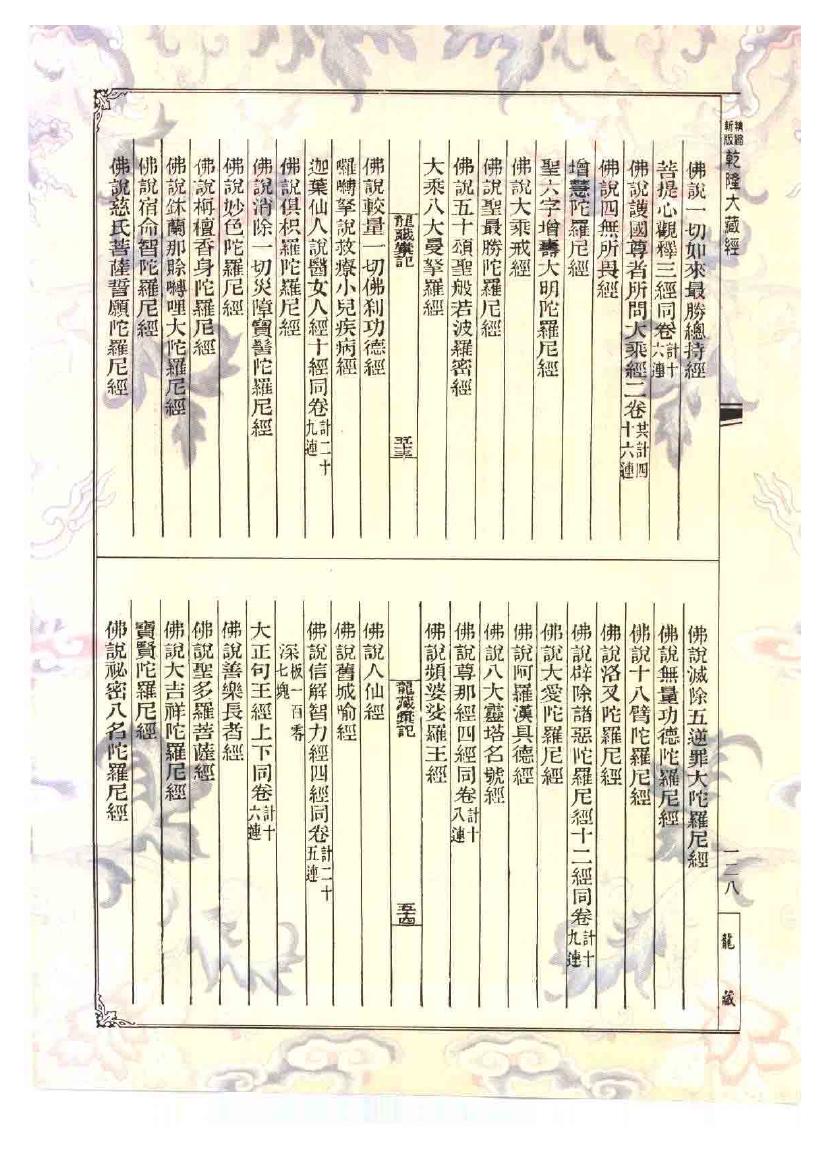 精縮
新版
乾隆大藏經
佛說一切如來最勝總持經
菩提心觀釋三經同卷計十六連
佛說護國尊者所問大乘經二卷共計四十六連
佛說四無所畏經
增慧陀羅尼經
聖六字增壽大明陀羅尼經
佛說大乘戒經
佛說聖最勝陀羅尼經
佛說五十頌聖般若波羅密經
大乘八大曼拏羅經
龍藏彙記
五十三
佛說較量一切佛剎功德經
囉嚩拏說救療小兒疾病經
迦葉仙人說醫女人經十經同卷計二十九連
佛說俱枳羅陀羅尼經
佛說消除一切災障寶髻陀羅尼經
佛說妙色陀羅尼經
佛說栴檀香身陀羅尼經
佛說鉢蘭那賒嚩哩大陀羅尼經
佛說宿命智陀羅尼經
佛說慈氏菩薩誓願陀羅尼經
佛說滅除五逆罪大陀羅尼經
佛說無量功德陀羅尼經
佛說十八臂陀羅尼經
佛說洛叉陀羅尼經
佛說辟除諸惡陀羅尼經十二經同卷計十九連
佛說大愛陀羅尼經
佛說阿羅漢具德經
佛說八大靈塔名號經
佛說尊那經四經同卷計十八連
佛說頻婆娑羅王經
龍藏彙記
五十四
佛說人仙經
佛說舊城喻經
佛說信解智力經四經同卷計二十五連
深板一百零七塊
大正句王經上下同卷計十六連
佛說善樂長者經
佛說聖多羅菩薩經
佛說大吉祥陀羅尼經
寶賢陀羅尼經
佛說祕密八名陀羅尼經
一二八
龍藏